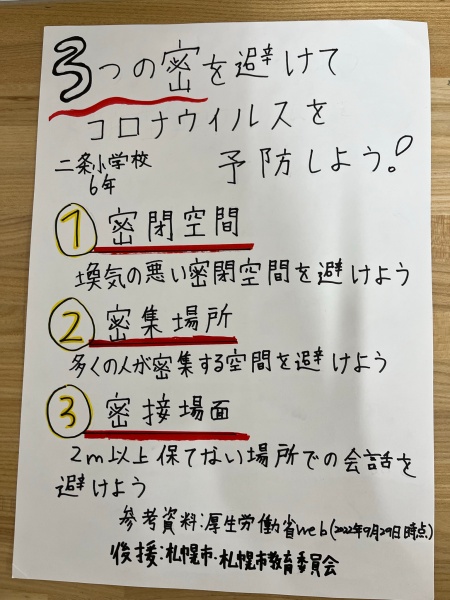 3つの密を避けて
コロナウィルスを
予防しよう!
二条小学校
6年
1 密閉空間
換気の悪い密閉空間を避けよう
2 密集場所
多くの人が密集する空間を避けよう
3 密接場面
2m以上保てない場所での会話を
避けよう
参考資料:厚生労働省web(2022年9月29日時点)
後援:札幌市・札幌市教育委員会